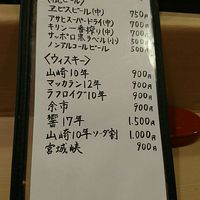 ヱビスビール(中) 750円
アサヒスーパードライ(中) 700円
キリン一番搾り(中) 700円
サッポロ黒ラベル(小) 500円
ノンアルコールビール 500円
(ウィスキー)
山崎10年 900円
マッカラン12年 900円
ラフロイグ10年 900円
余市 900円
響17年 1.500円
山崎10年ソーダ割 1.000円
宮城峡 900円